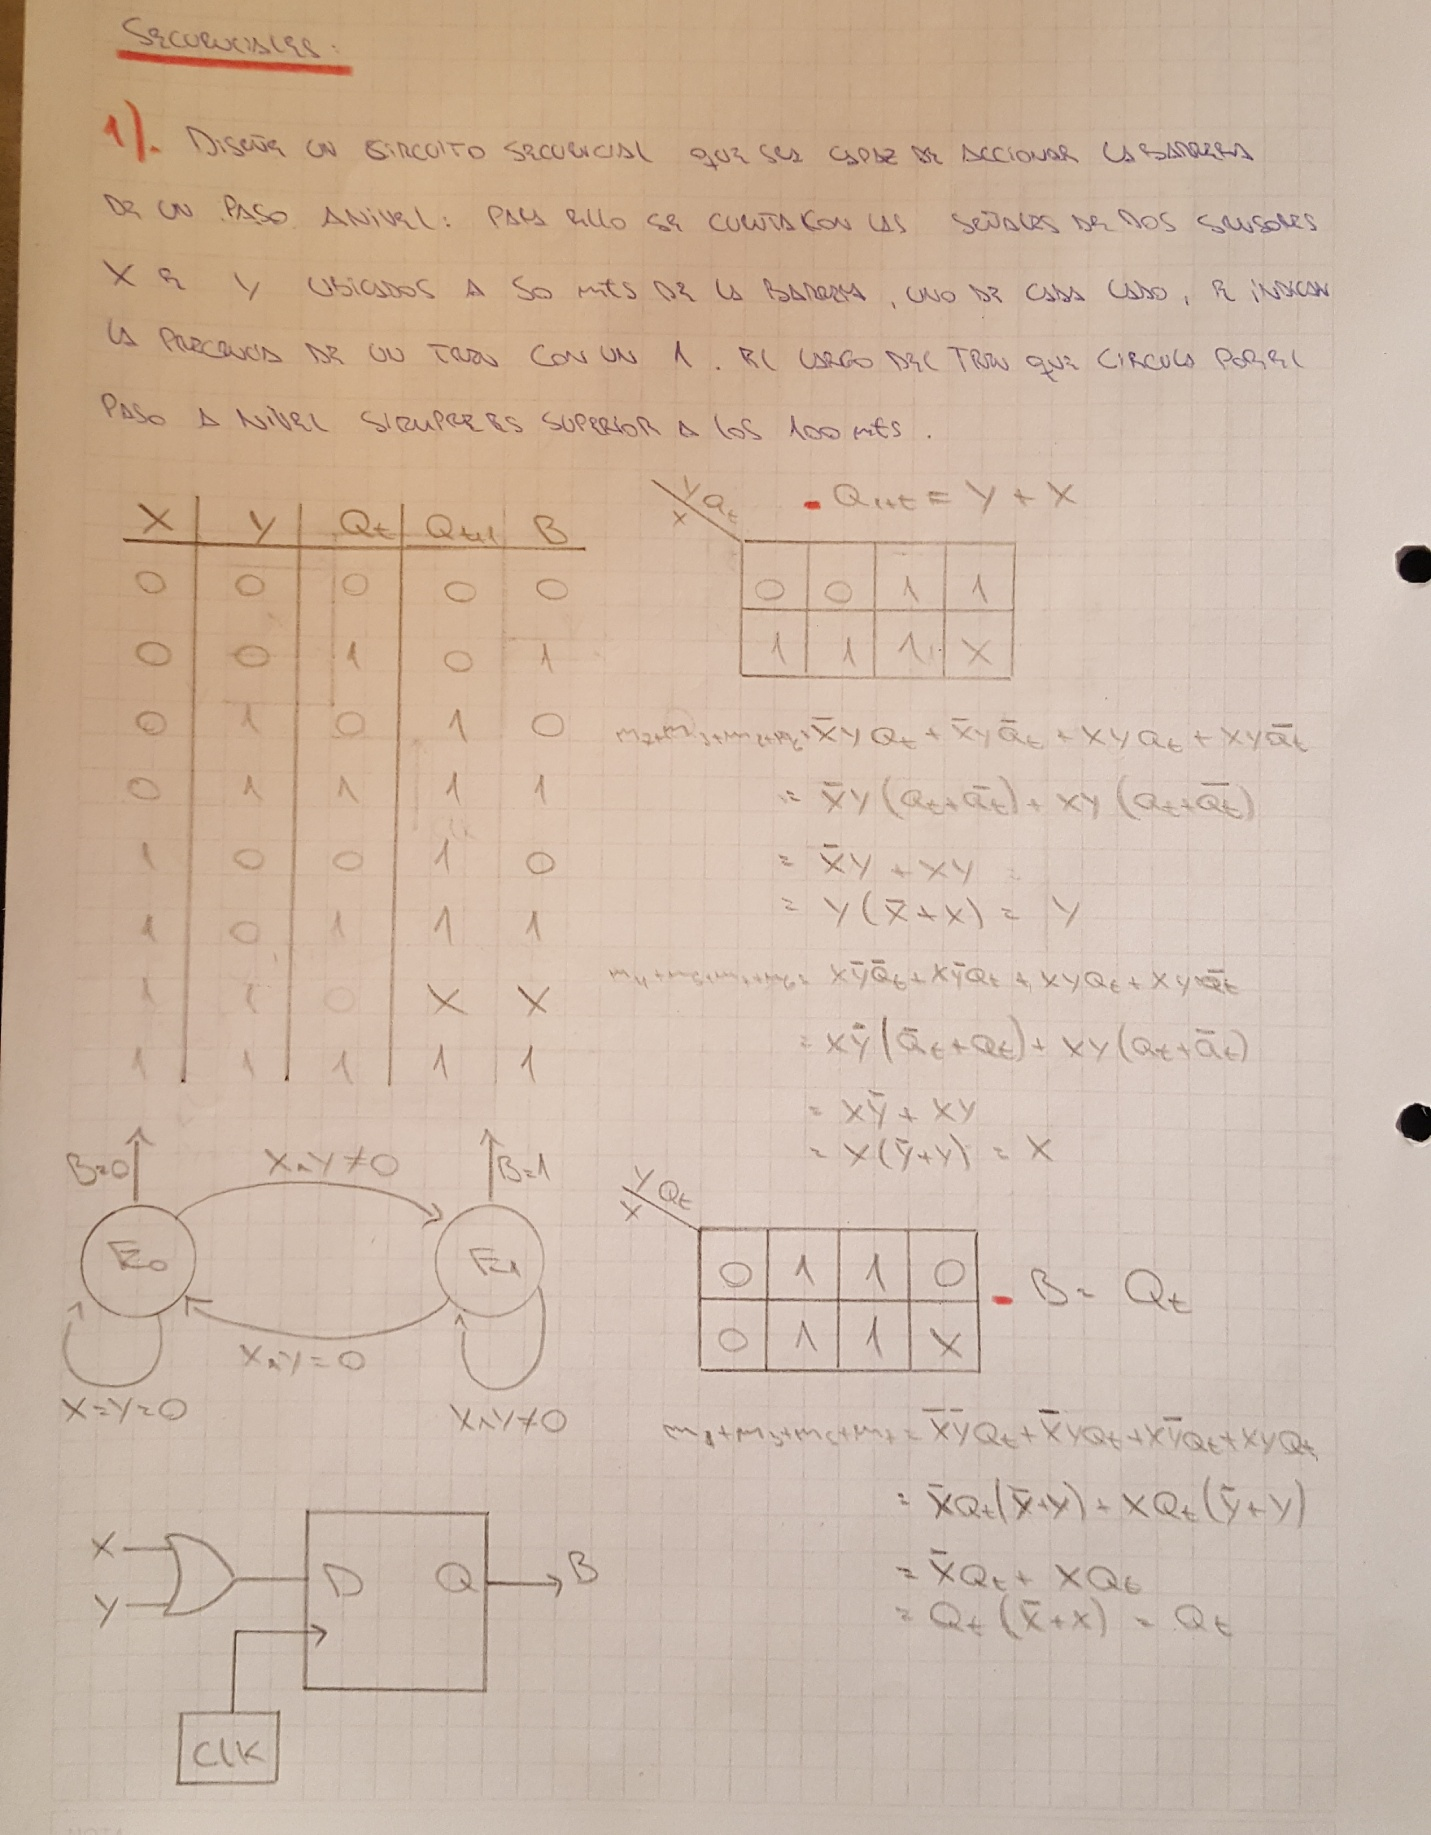 SECUENCIALES:
1). DISEÑE UN CIRCUITO SECUENCIAL QUE SEA CAPAZ DE ACCIONAR LA BARRERA
DE UN PASO A NIVEL: PARA ELLO SE CUENTA CON LAS SEÑALES DE DOS SENSORES
X E Y UBICADOS A 50 mts DE LA BARRERA, UNO DE CADA LADO, E INDICAN
LA PRECENCIA DE UN TREN CON UN 1. EL LARGO DEL TREN QUE CIRCULA POR EL
PASO A NIVEL SIEMPRE ES SUPERIOR A LOS 100 mts.
X Y Qt Qt+1 B
0 0 0 0 0
0 0 1 0 1
0 1 0 1 0
0 1 1 1 1
1 0 0 1 0
1 0 1 1 1
1 1 0 X X
1 1 1 1 1
YQt
X
Q1+t = Y + X
0 0 1 1
1 1 1 X
X̄YQt + X̄YQ̄t + XYQt + XYQ̄t
= X̄Y(Qt+Q̄t) + XY(Qt+Q̄t)
= X̄Y + XY
= Y(X̄+X) = Y
XȲQ̄t + XȲQt + XYQt + XYQ̄t
= XȲ(Q̄t+Qt) + XY(Qt+Q̄t)
= XȲ + XY
= X(Ȳ+Y) = X
B=0
X∧Y≠0
B=1
E0
E1
X∧Y=0
X=Y=0
X∧Y≠0
YQt
X
0 1 1 0
0 1 1 X
B = Qt
m1+m3+m5+m7 = X̄ȲQt + X̄YQt + XȲQt + XYQt
= X̄Qt(X̄+Y) + XQt(Ȳ+Y)
= X̄Qt + XQt
= Qt(X̄+X) = Qt
X
Y
D Q
B
CLK